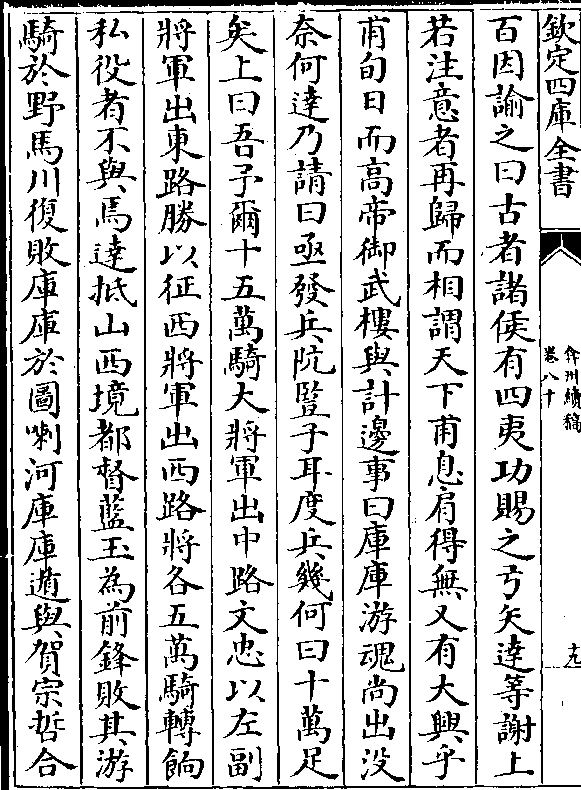 欽定四庫全書
弇州續稿
卷八十
十九
百因諭之曰古者諸侯有四夷功賜之弓矢達等謝上
若注意者再歸而相謂天下甫息肩得無又有大興乎
甫旬日而高帝御武樓與計邊事曰庫庫游魂尚出没
奈何達乃請曰亟發兵阬豎子耳度兵幾何曰十萬足
矣上曰吾予爾十五萬騎大將軍出中路文忠以左副
將軍出東路勝以征西將軍出西路將各五萬騎轉餉
私役者不與焉達抵山西境都督藍玉為前鋒敗其游
騎於野馬川復敗庫庫於圖喇河庫庫遁與賀宗哲合